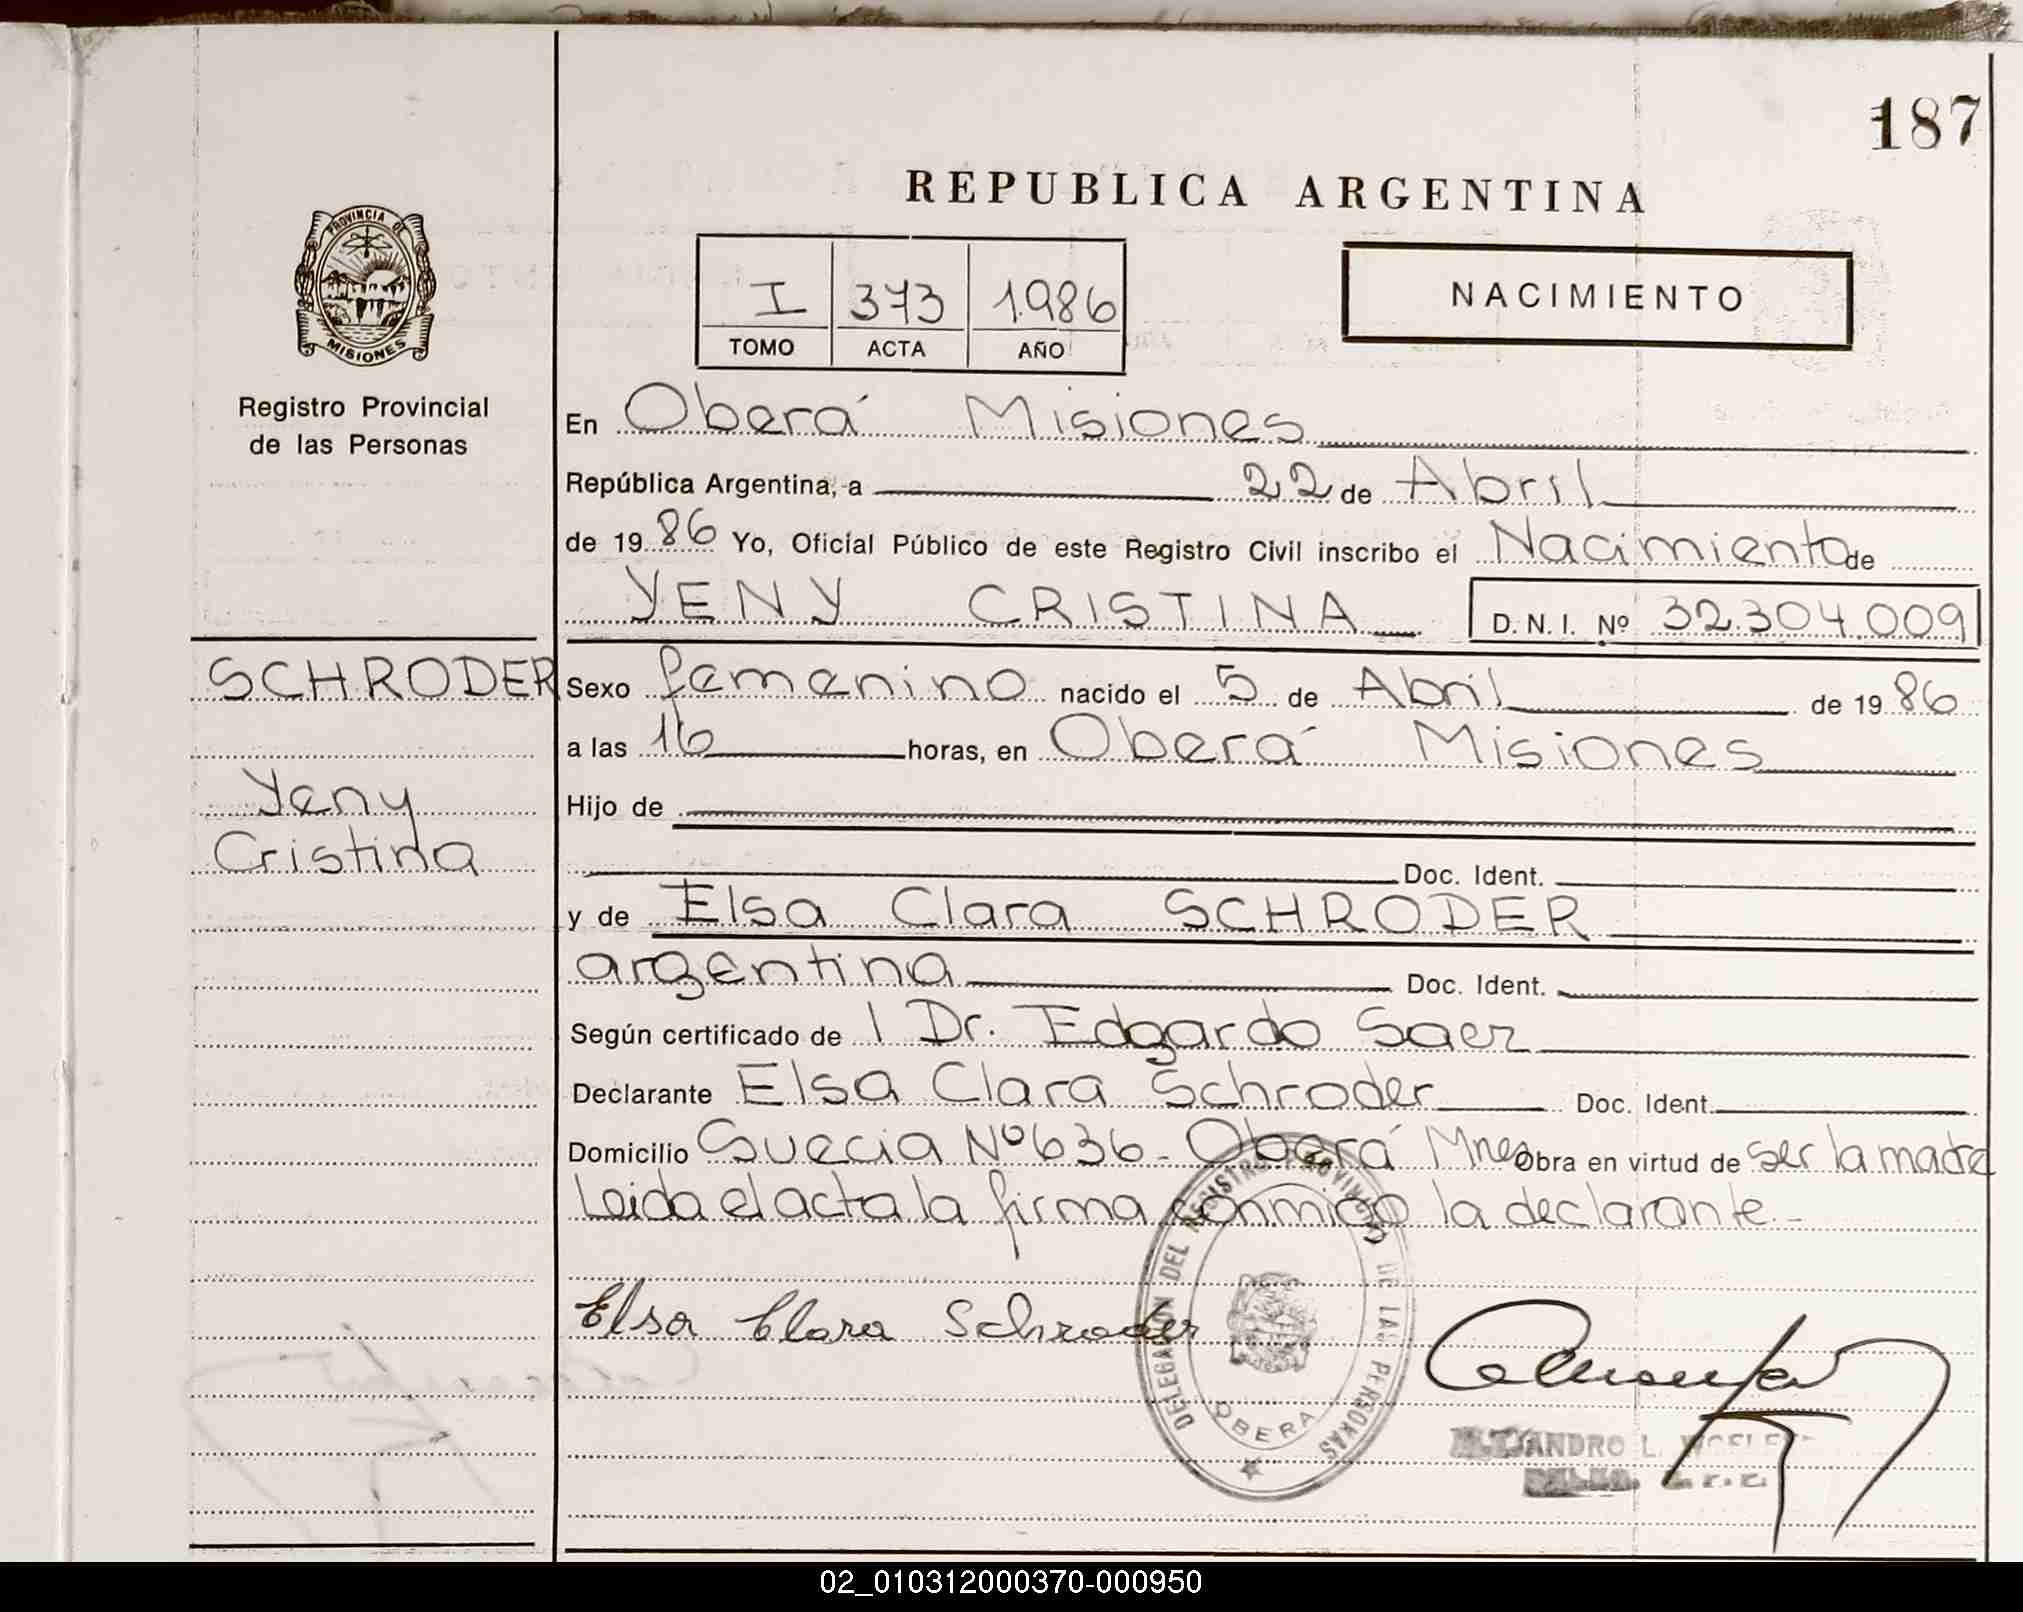 187
REPUBLICA ARGENTINA
PROVINCIA DE
MISIONES
I 373 1.986
TOMO ACTA AÑO
NACIMIENTO
Registro Provincial
de las Personas
En Oberá Misiones
República Argentina, a 22 de Abril
de 1986 Yo, Oficial Público de este Registro Civil inscribo el Nacimiento de
YENY CRISTINA D. N. I. Nº 32.304.009
SCHRODER
Yeny
Cristina
Sexo femenino nacido el 5 de Abril de 1986
a las 16 horas, en Oberá Misiones
Hijo de
Doc. Ident.
y de Elsa Clara SCHRODER
argentina Doc. Ident.
Según certificado de l Dr. Edgardo Saez
Declarante Elsa Clara Schroder Doc. Ident.
Domicilio Suecia Nº 636 - Oberá Mnes Obra en virtud de ser la madre
Leida el acta la firma conmigo la declarante.-
Elsa Clara Schroder
DELEGACION DEL REGISTRO PROVINCIAL DE LAS PERSONAS
OBERA
02_010312000370-000950